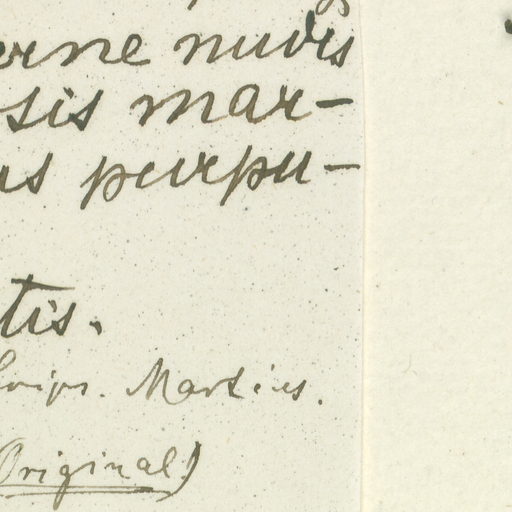 erne nudis
sis mar-
us purpu-
tis.
scrips. Martius.
Original)